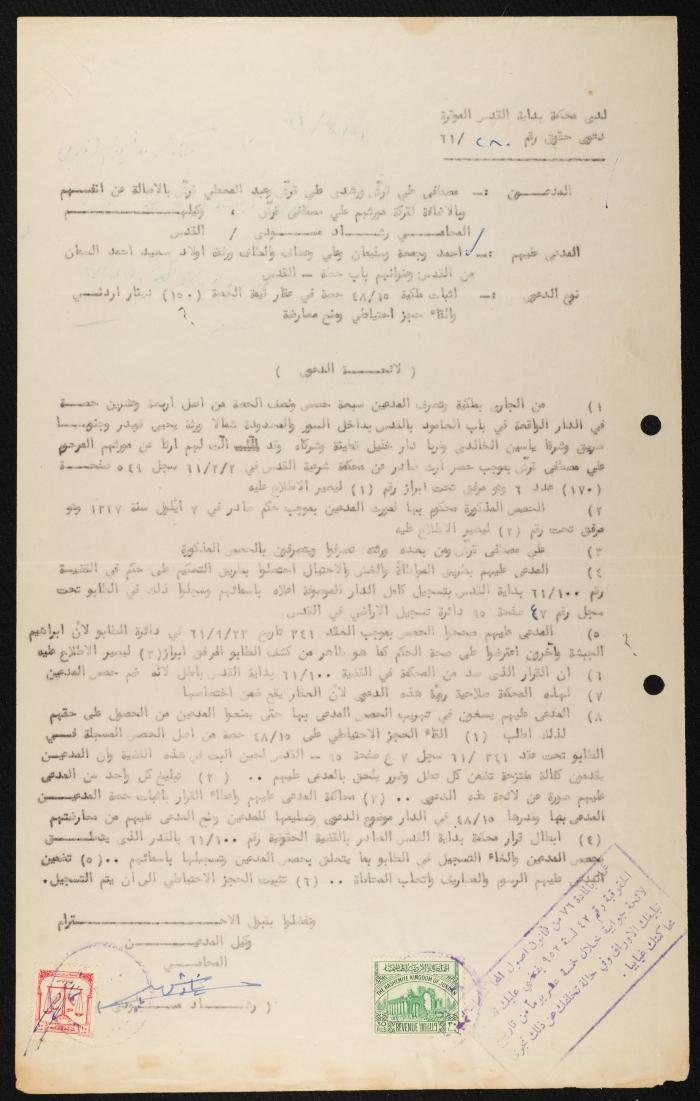 لدى محكمة بداية القدس الموقرة
دعوى حقوق رقم ٢٨٠ /٦١
المدعــــون :ـ مصطفى علي ورشدي علي وعبد المعطي بالاصالة عن انفسهم
وبالاضافة لتركة مورثهم علي مصطفى ، وكيلهـــــم
المحامــــي رشــــاد مســــودي / القدس
المدعى عليهم :ـ احمد وجمعة وسليمان وعلي وعفاف والطاف ورثقة اولاد سعيد احمد السمان
من القدس وعنوانهم باب حطة ــ القدس
نوع الدعوى :ـ اثبات ملكية ٤٨/١٥ حصة في عقار قيمة الحصة (١٥٠) دينار اردنــي
والقاء حجز احتياطي ومنع معارضة
( لائحــــة الدعوى )
١) من الجاري بملكية وتصرف المدعين سبعة حصص ونصف الحصة من اصل اربعة وعشرين حصــــة
في الدار الواقعة في باب العامود بالقدس بداخل السور والمحدودة شمالا ورثة يحيى قويدر وجنوبــــا
طريق وشرقا ياسين الخالدي وغربا دار خليل وشركاه وقد آلت لهم ارثا عن مورثهم المرحوم
علي مصطفى بموجب حصر ارث صادر عن محكمة شرعية القدس في ٦١/٢/٢ سجل ٥٤٩ صفحــــة
(١٧٠) عدد ٦ وهو مرفق تحت ابراز رقم (١) ليصير الاطلاع عليه
٢) الحصص المذكورة محكوم بها لمورث المدعين بموجب حكم صادر في ٧ ايلول سنة ١٣١٧ وهو
مرفق تحت رقم (٢) ليصير الاطلاع عليه
٣) علي مصطفى ومن بعده ورثته تصرفوا ويتصرفون بالحصص المذكورة
٤) المدعى عليهم بطريق المواطأة والغش والاحتيال احتصلوا بطريق التحكيم على حكم في القضيــة
رقم ٦١/١٠٠ بداية القدس بتسجيل كامل الدار الموصوفة اعلاه باسمائهم وسجلوا ذلك في الطابو تحت
سجل رقم ٤٧ صفحة ٦٥ دائرة تسجيل الاراضي في القدس
٥) المدعى عليهم صححوا الحصص بموجب العقد ٣٤١ تاريخ ٦١/٩/٢٣ في دائرة الطابو لان ابراهيم
الحبشة وآخرون اعترضوا على صحة الحكم كما هو ظاهر من كشف الطابو المرفق ابراز(٣) ليصير الاطلاع عليه
٦) ان القرار الذي صدر من المحكمة في القضية ٦١/١٠٠ بداية القدس باطل لانه ضم حصص المدعين
٧) لهذه المحكمة صلاحية رؤية هذه الدعوى لان العقار يقع ضمن اختصاصها
٨) المدعى عليهم يسعون في تهريب الحصص المدعى بها حتى يمنعوا المدعين من الحصول على حقهم
لذلك اطلب (١) القاء الحجز الاحتياطي على ٤٨/١٥ حصة من اصل الحصص المسجلة فــــي
الطابو تحت عقد ٣٤١ /٦١ سجل ٤٧ صفحة ٦٥ ــ القدس لحين البت في هذه القضية وان المدعيــن
يقدمون كفالة مقترحة تضمن كل عطل وضرر يلحق بالمدعى عليهم .. (٢) تبليغ كل واحد من المدعى
عليهم صورة عن لائحة هذه الدعوى .. (٣) محاكمة المدعى عليهم واعطاء القرار باثبات حصة المدعيــن
المدعى بها وقدرها ٤٨/١٥ في الدار موضوع الدعوى وتسليمها للمدعين ومنع المدعى عليهم من معارضتهم
(٤) ابطال قرار محكمة بداية القدس الصادر بالقضية الحقوقية رقم ٦١/١٠٠ بالقدر الذي يتعلــــق
بحصص المدعين والغاء التسجيل في الطابو بما يتعلق بحصص المدعين وتسجيلها باسمائهم ..(٥) تضمين
المدعى عليهم الرسوم والمصاريف واتعاب المحاماة ..(٦) تثبيت الحجز الاحتياطي الى ان يتم التسجيل.
وتفضلوا بقبول الاحــــــترام
وكيل المدعيــــن
المحامــــي
( رشــــاد مســــودي )
المملكة الأردنية الهاشمية
THE HASHEMITE KINGDOM OF JORDAN
30 FILS REVENUE
عملا بالمادة ٧٦ من قانون اصول المحاكمات
الحقوقية رقم ٤٢ لسنة ٩٥٢ يقتضي عليك تقديم
لائحة جوابية خلال خمسة عشر يوما من تاريخ
تبليغك الاوراق وفي حالة تخلفك عن ذلك تجري
محاكمتك غيابيا .